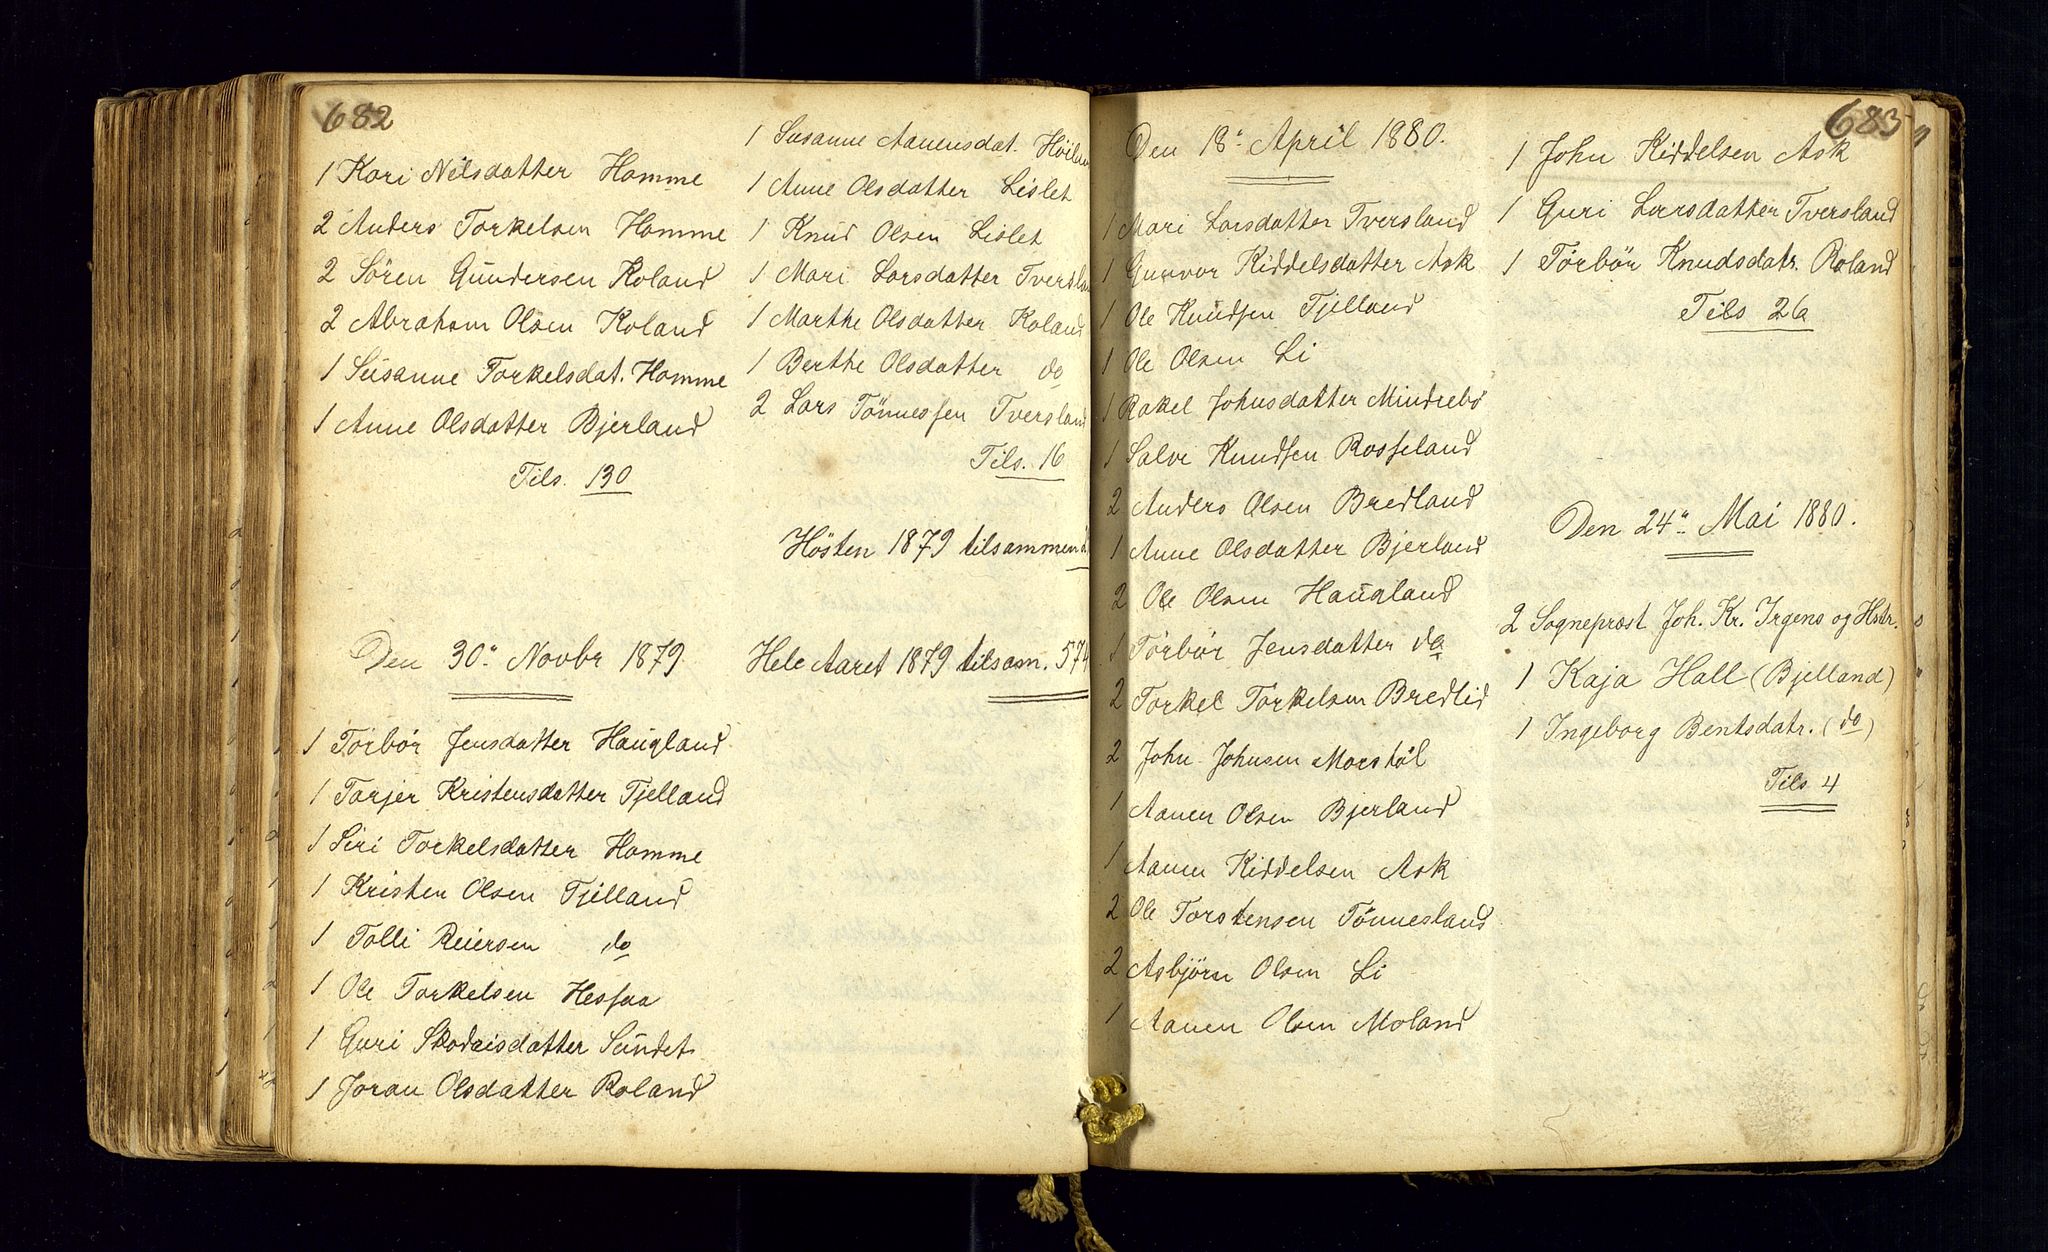 682
1 Kari Nilsdatter Homme
2 Anders Torkelsen Homme
2 Sören Gundersen Roland
2 Abraham Olsen Roland
1 Susanne Torkelsdat. Homme
1 Anne Olsdatter Bjerland
Tils. 130
Den 30. Novbr 1879
1 Torbør Jensdatter Haugland
1 Torjer Kristensdatter Tjelland
1 Siri Torkelsdatter Homme
1 Kristen Olsen Tjelland
1 Tolli Reiersen do
1 Ole Torkelsen Hessaa
1 Guri Skodvisdatter Sundet
1 Joran Olsdatter Roland
1 Susanne Aanensdat.
1 Anne Olsdatter Lislet
1 Knud Olsen Lislet
1 Mari Larsdatter
1 Marthe Olsdatter Roland
1 Berthe Olsdatter do
2 Lars Tönnessen Tversland
Tils. 16
Hösten 1879 tilsammen
Hele Aaret 1879 tilsam. 574
683
Den 18. April 1880.
1 Mari Larsdatter Tversland
1 Gunvor Kiddelsdatter Ask
1 Ole Knudsen Tjelland
1 Ole Olsen Li
1 Rakel Johnsdatter Mindrebö
1 Salve Knudsen Rosseland
2 Anders Olsen Bredland
1 Anne Olsdatter Bjerland
2 Ole Olsen Haugland
1 Törbør Jensdatter do
2 Torkel Torkelsen Bredlid
2 John Johnsen Monstöl
1 Aanen Olsen Bjerland
1 Aanen Kiddelsen Ask
2 Ole Torstensen Tönnesland
2 Asbjörn Olsen Li
1 Aanen Olsen Moland
1 John Kiddelsen Ask
1 Guri Larsdatter Tversland
1 Torbör Knudsdatr. Roland
Tils 26
Den 24. Mai 1880.
2 Sogneprest Joh. Kr. Irgens og Hstr.
1 Kaja Hall (Bjelland)
1 Ingeborg Bentsdatr. (do)
Tils 4